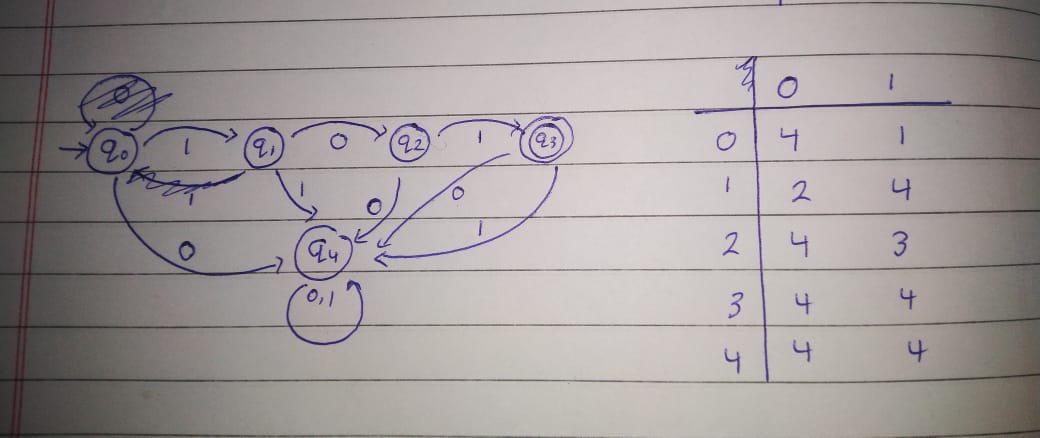 0
q0 1 q1 0 q2 1 q3
1 1 0 0 1
0 q4
0,1
0 1
0 4 1
1 2 4
2 4 3
3 4 4
4 4 4